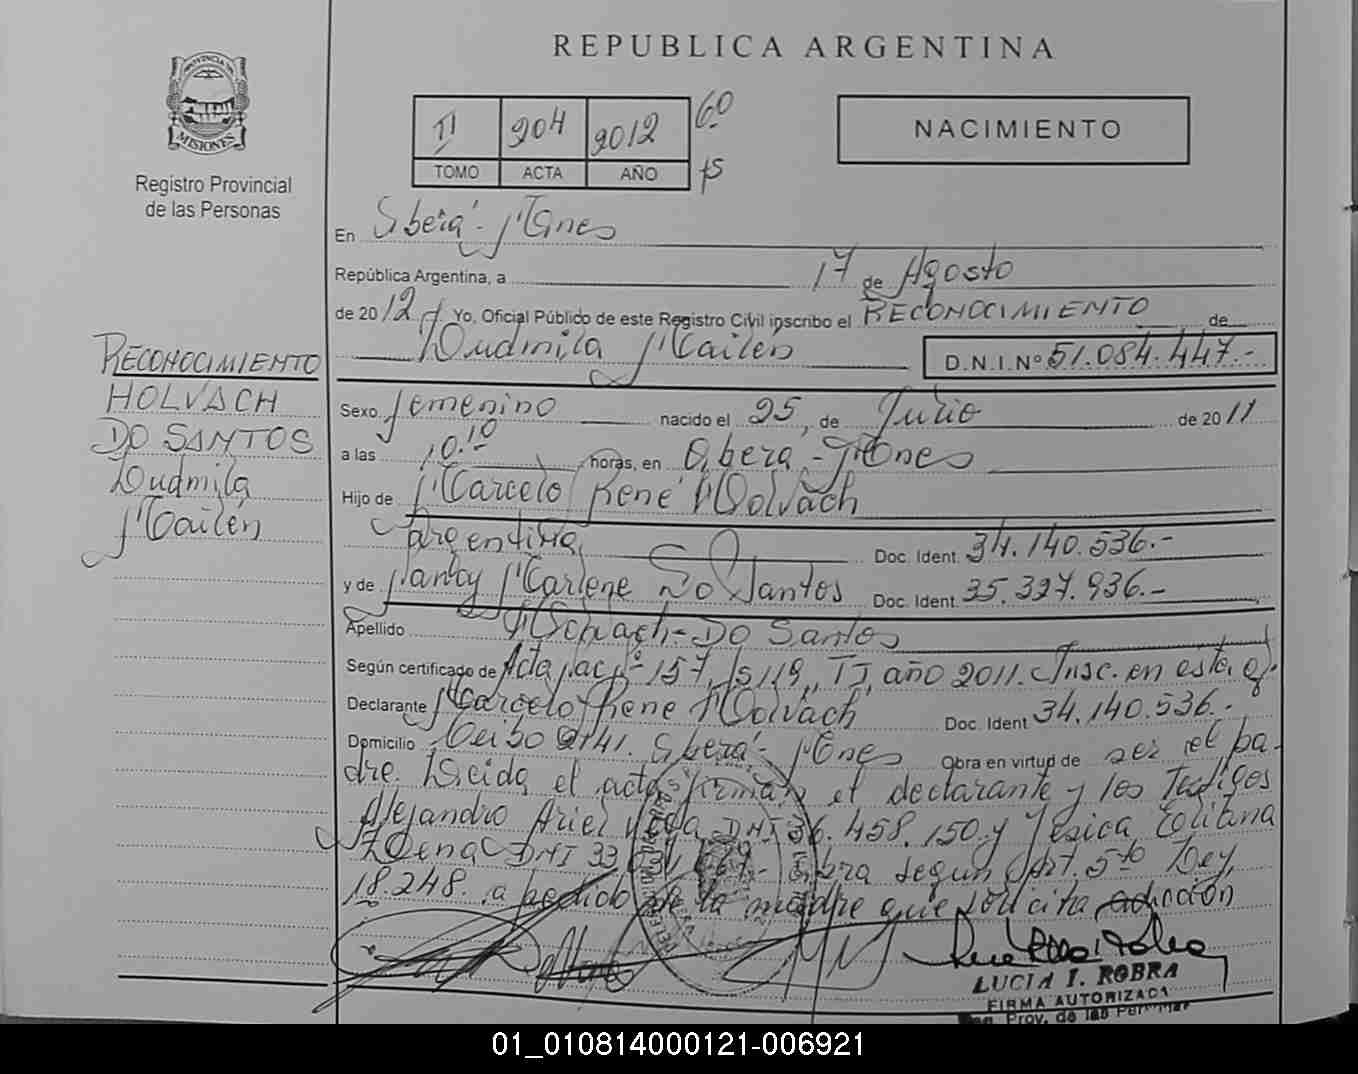 REPUBLICA ARGENTINA
PROVINCIA DE
MISIONES
Registro Provincial
de las Personas
II 204 2012 60
TOMO ACTA AÑO
NACIMIENTO
En Oberá - Mnes
República Argentina, a 17 de Agosto
de 2012 Yo, Oficial Público de este Registro Civil inscribo el RECONOCIMIENTO de
Ludmila Mailén D.N.I.Nº 51.084.447.-
RECONOCIMIENTO
HOLVACH
DO SANTOS
Ludmila
Mailén
Sexo femenino nacido el 25, de Julio de 2011
a las 10.10 horas, en Oberá - Mnes
Hijo de Marcelo René Holvach
Argentina Doc. Ident. 34.140.536.-
y de Nancy Marlene Do Santos Doc. Ident. 35.327.936.-
Apellido Holvach - Do Santos
Según certificado de Acta nac. Nº 157, fs 119, TI, año 2011. Insc. en esta of.
Declarante Marcelo René Holvach Doc. Ident 34.140.536.-
Domicilio Ceibo 2141. Oberá - Mnes Obra en virtud de ser el pa-
dre. Leída el acta, firman el declarante y los testigos
Alejandro Ariel DNI 36.458.150 y Yesica
DNI 33 Obra según Art. 5to Ley
18.248. a pedido de la madre que solicita adición
LUCIA I. ROBRA
FIRMA AUTORIZADA
Reg. Prov. de las Personas
01_010814000121-006921